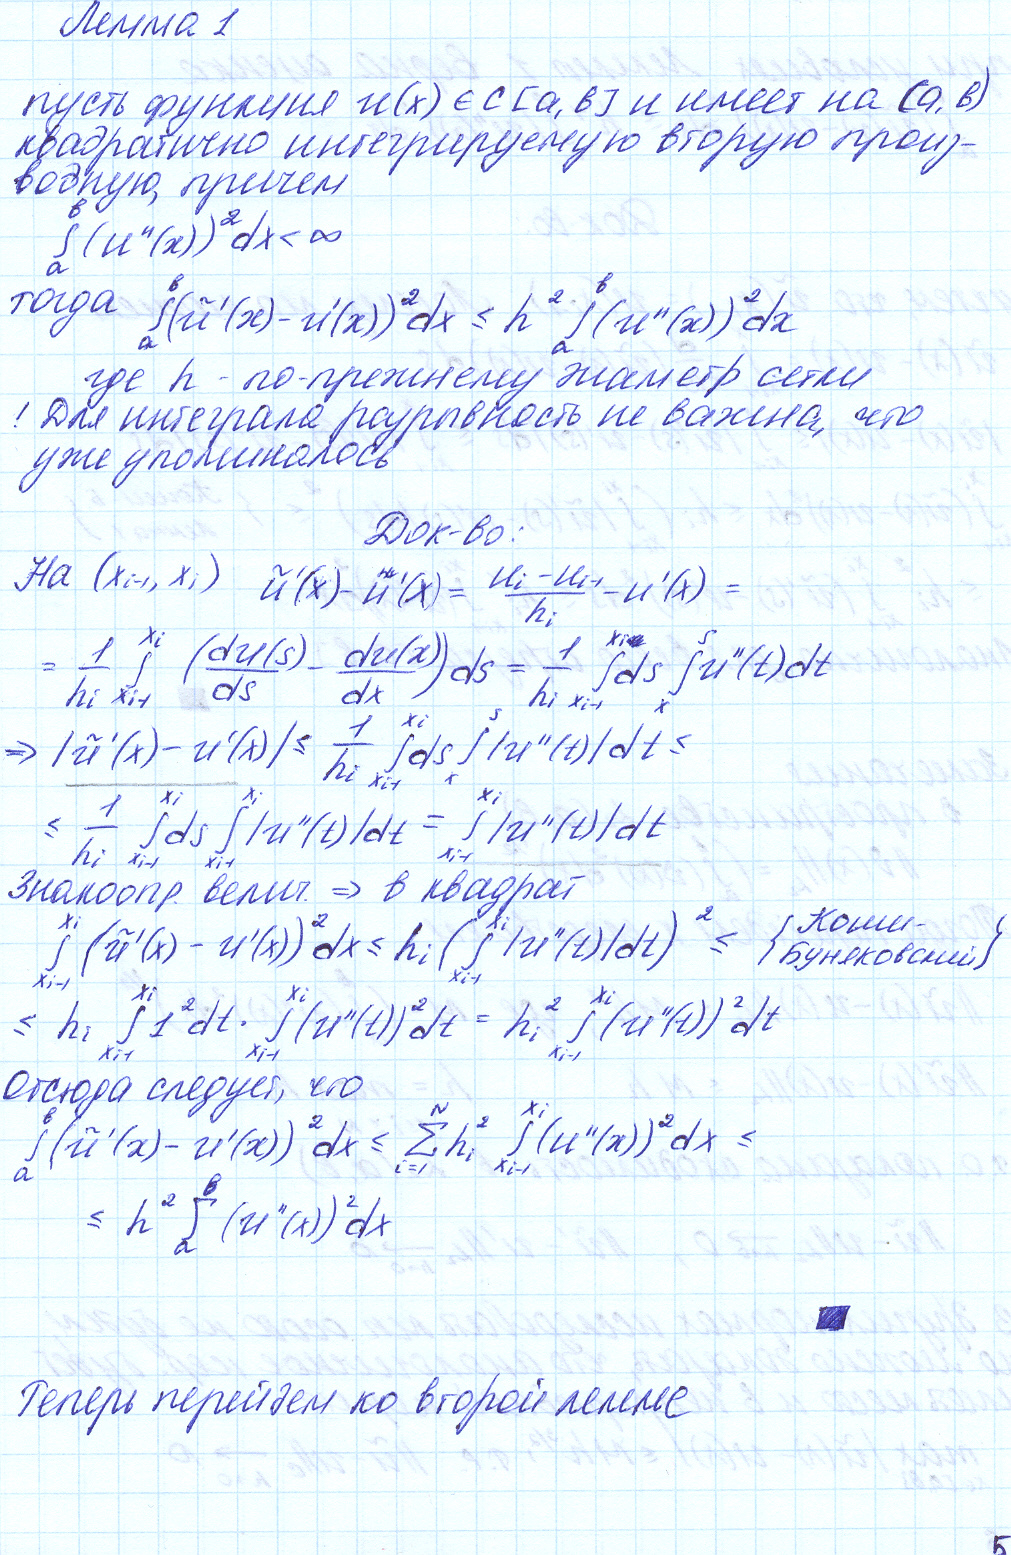 Лемма 1
пусть функция u(x) ∈ C [a, в] и имеет на (a, в)
квадратично интегрируемую вторую произ-
водную, причем
∫_a^в (u''(x))² dx < ∞
тогда ∫_a^в (ũ'(x) - u'(x))² dx ≤ h² ∫_a^в (u''(x))² dx
где h - по-прежнему диаметр сетки
! Для интеграла разрывность не важна, что
уже упоминалось
Док-во:
На (x_{i-1}, x_i) ũ'(x) - u'(x) = (u_i - u_{i-1})/h_i - u'(x) =
= 1/h_i ∫_{x_{i-1}}^{x_i} (du(s)/ds - du(x)/dx) ds = 1/h_i ∫_{x_{i-1}}^{x_i} ds ∫_x^s u''(t) dt
⇒ |ũ'(x) - u'(x)| ≤ 1/h_i ∫_{x_{i-1}}^{x_i} ds ∫_x^s |u''(t)| dt ≤
≤ 1/h_i ∫_{x_{i-1}}^{x_i} ds ∫_{x_{i-1}}^{x_i} |u''(t)| dt = ∫_{x_{i-1}}^{x_i} |u''(t)| dt
Знакоопр. велич. ⇒ в квадрат
∫_{x_{i-1}}^{x_i} (ũ'(x) - u'(x))² dx ≤ h_i (∫_{x_{i-1}}^{x_i} |u''(t)| dt)² ≤ {Коши-
Буняковский}
≤ h_i ∫_{x_{i-1}}^{x_i} 1² dt · ∫_{x_{i-1}}^{x_i} (u''(t))² dt = h_i² ∫_{x_{i-1}}^{x_i} (u''(t))² dt
Отсюда следует, что
∫_a^в (ũ'(x) - u'(x))² dx ≤ Σ_{i=1}^N h_i² ∫_{x_{i-1}}^{x_i} (u''(x))² dx ≤
≤ h² ∫_a^в (u''(x))² dx
Теперь перейдем ко второй лемме
5